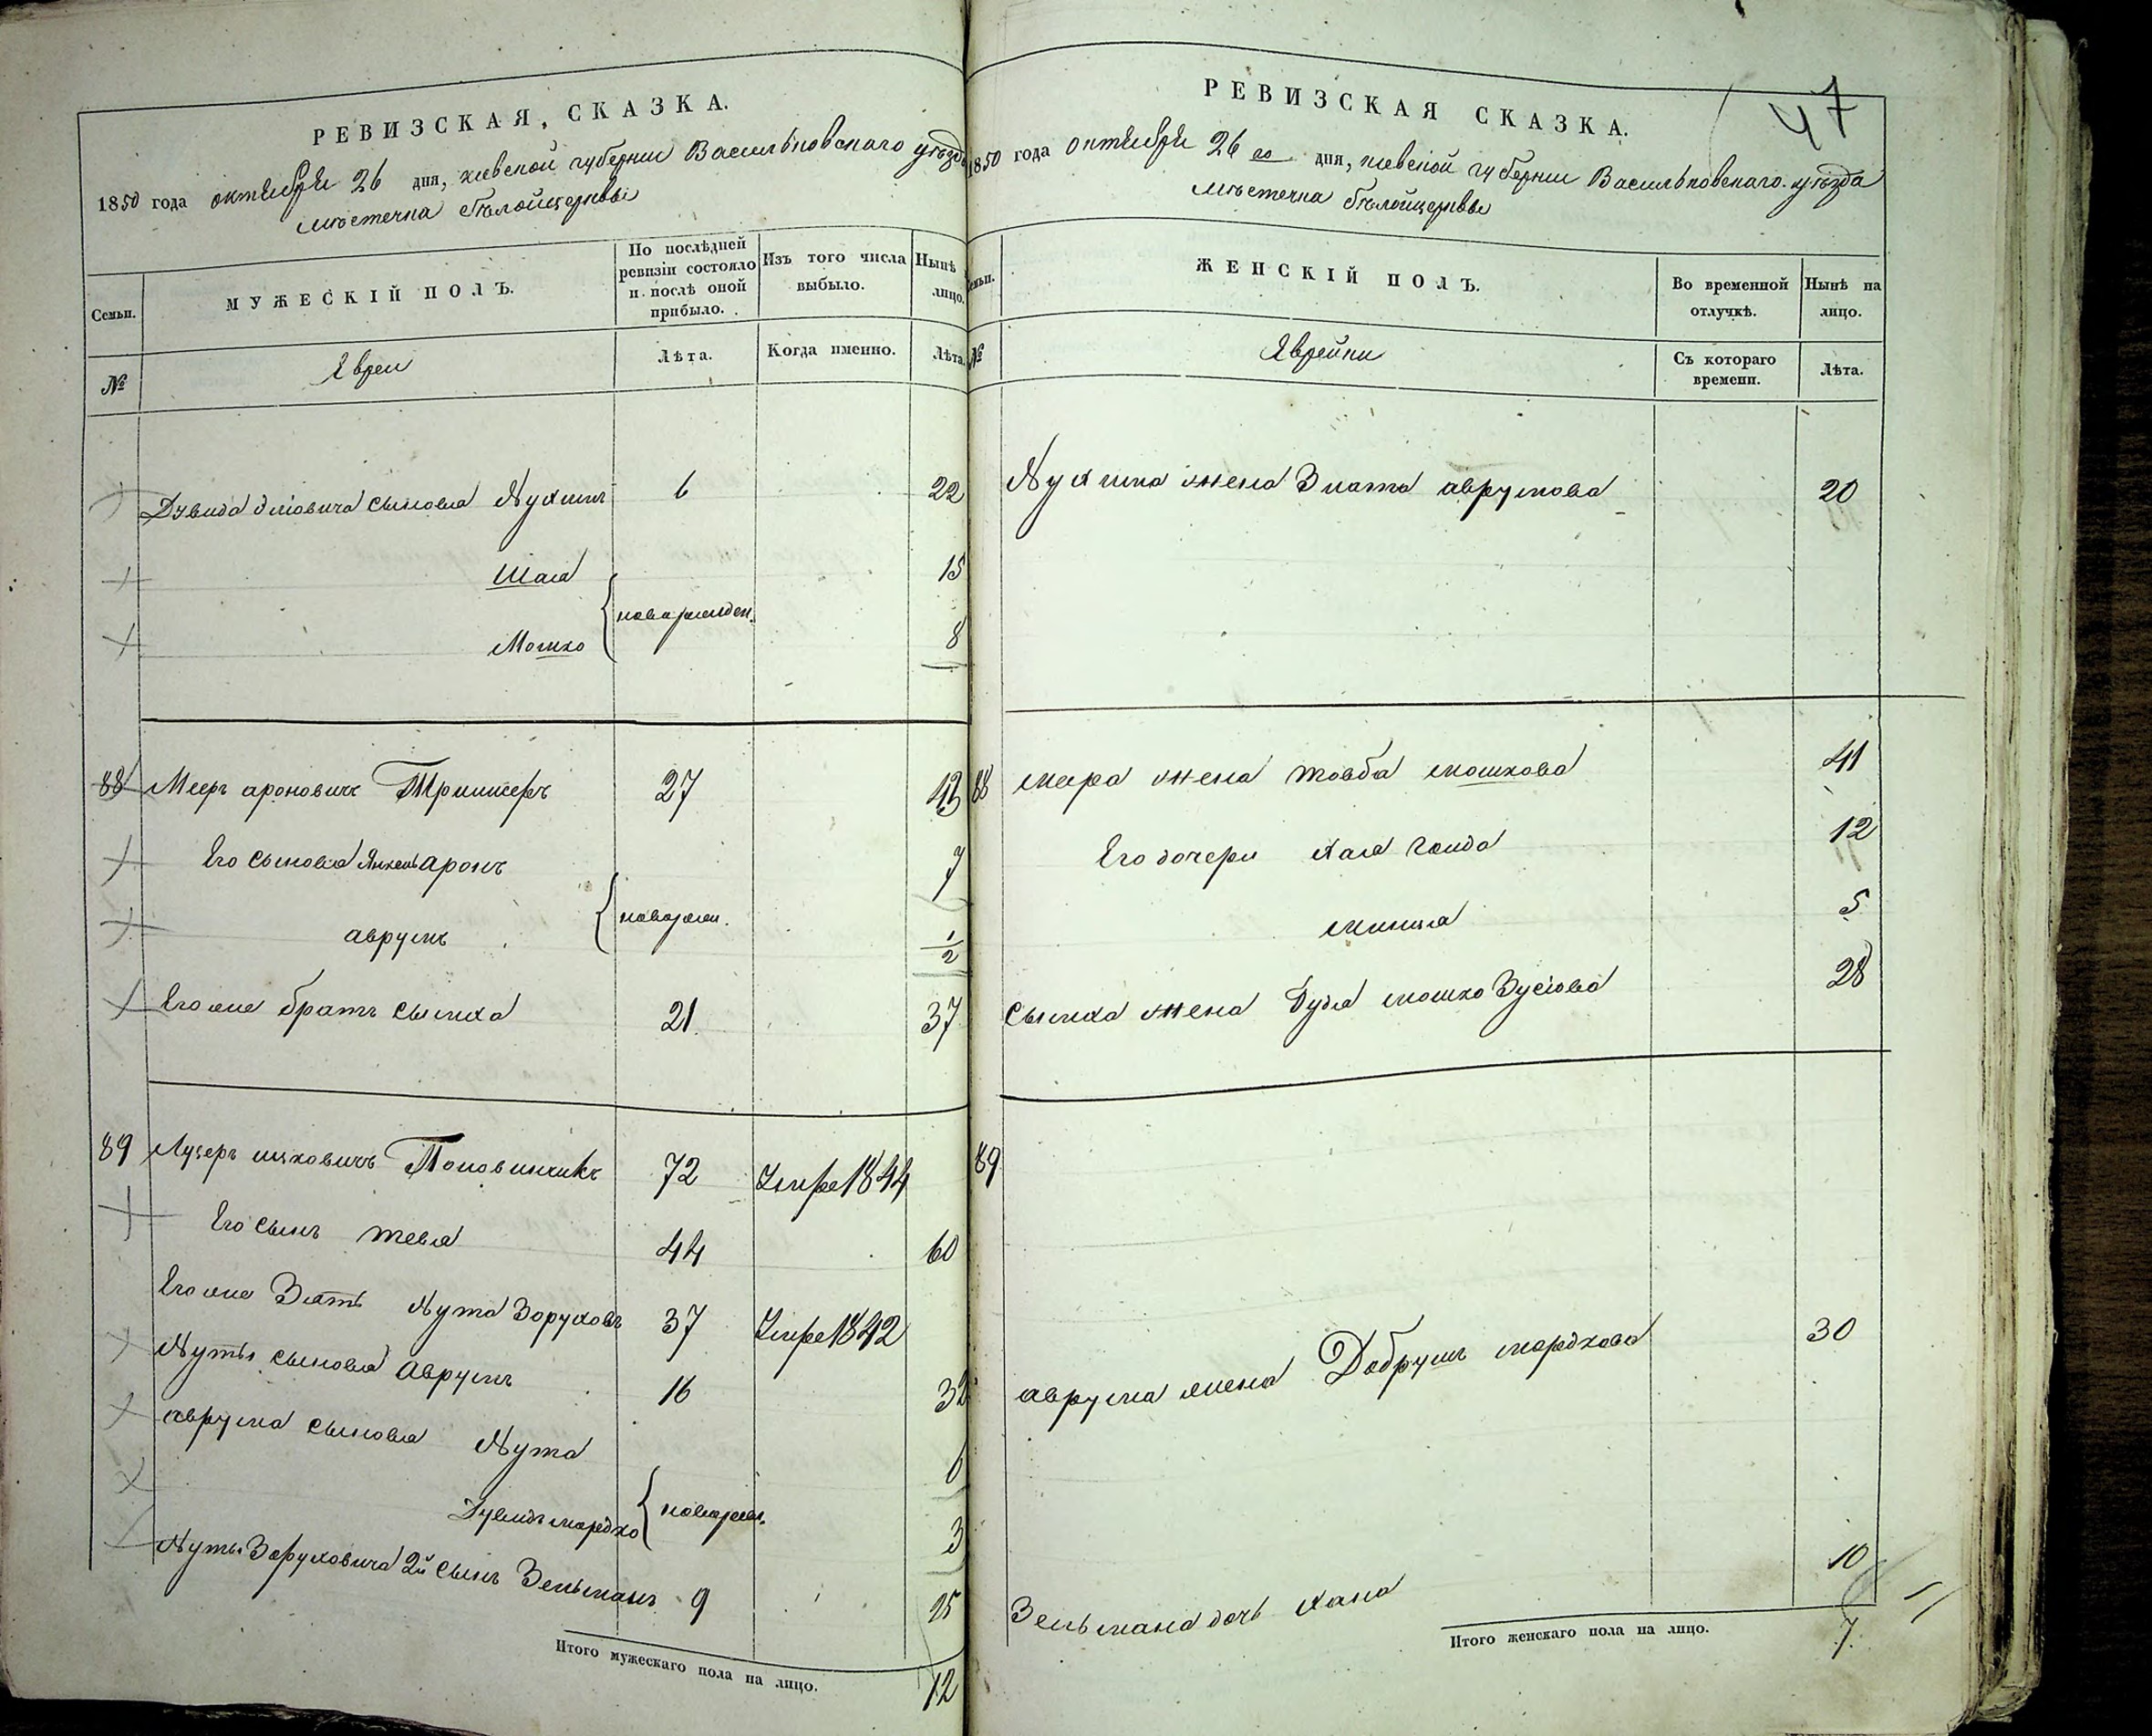 РЕВИЗСКАЯ, СКАЗКА.
1850 года октября 26 дня, киевской губернии Васильковскаго уѣзда
мѣстечка бѣлойцеркви
Семьи.
МУЖЕСКІЙ ПОЛЪ.
По послѣдней ревизіи состояло и послѣ оной прибыло.
Изъ того числа выбыло.
Нынѣ лицо.
№
Евреи
Лѣта.
Когда именно.
Лѣта.
Дувида сыновья Нухимъ 6 22
Шая 15
новорожден.
Мошко 8
88 Мееръ ароновичъ 27 43
Его сыновья Янкель аронъ 7
аврумъ новорожд. 1/2
Его же братъ сымха 21 37
89 Лузеръ ицковичъ 72 Умре 1844
Его сынъ тевья 44 60
Его же Зять Нута Зоруховъ 37 Умре 1842
Нуты сыновья аврумъ 16 32
аврума сыновья Нута 6
Дувидъ мордко новорож. 3
Нуты Зоруховича 2й сынъ Зельманъ 9 25
Итого мужескаго пола на лицо. 12
47
РЕВИЗСКАЯ СКАЗКА.
1850 года октября 26 го дня, киевской губернии Васильковскаго уѣзда
мѣстечка бѣлойцеркви
Семьи.
ЖЕНСКІЙ ПОЛЪ.
Во временной отлучкѣ.
Нынѣ на лицо.
№
Еврейки
Съ котораго времени.
Лѣта.
Нухима жена Злата аврумова 20
88 меера жена товба мошкова 41
Его дочери хая 12
5
сымха жена мошко Зусіова 28
89
аврума жена Добрушъ мордкова 30
Зельмана дочь хана 10
Итого женскаго пола на лицо. 7